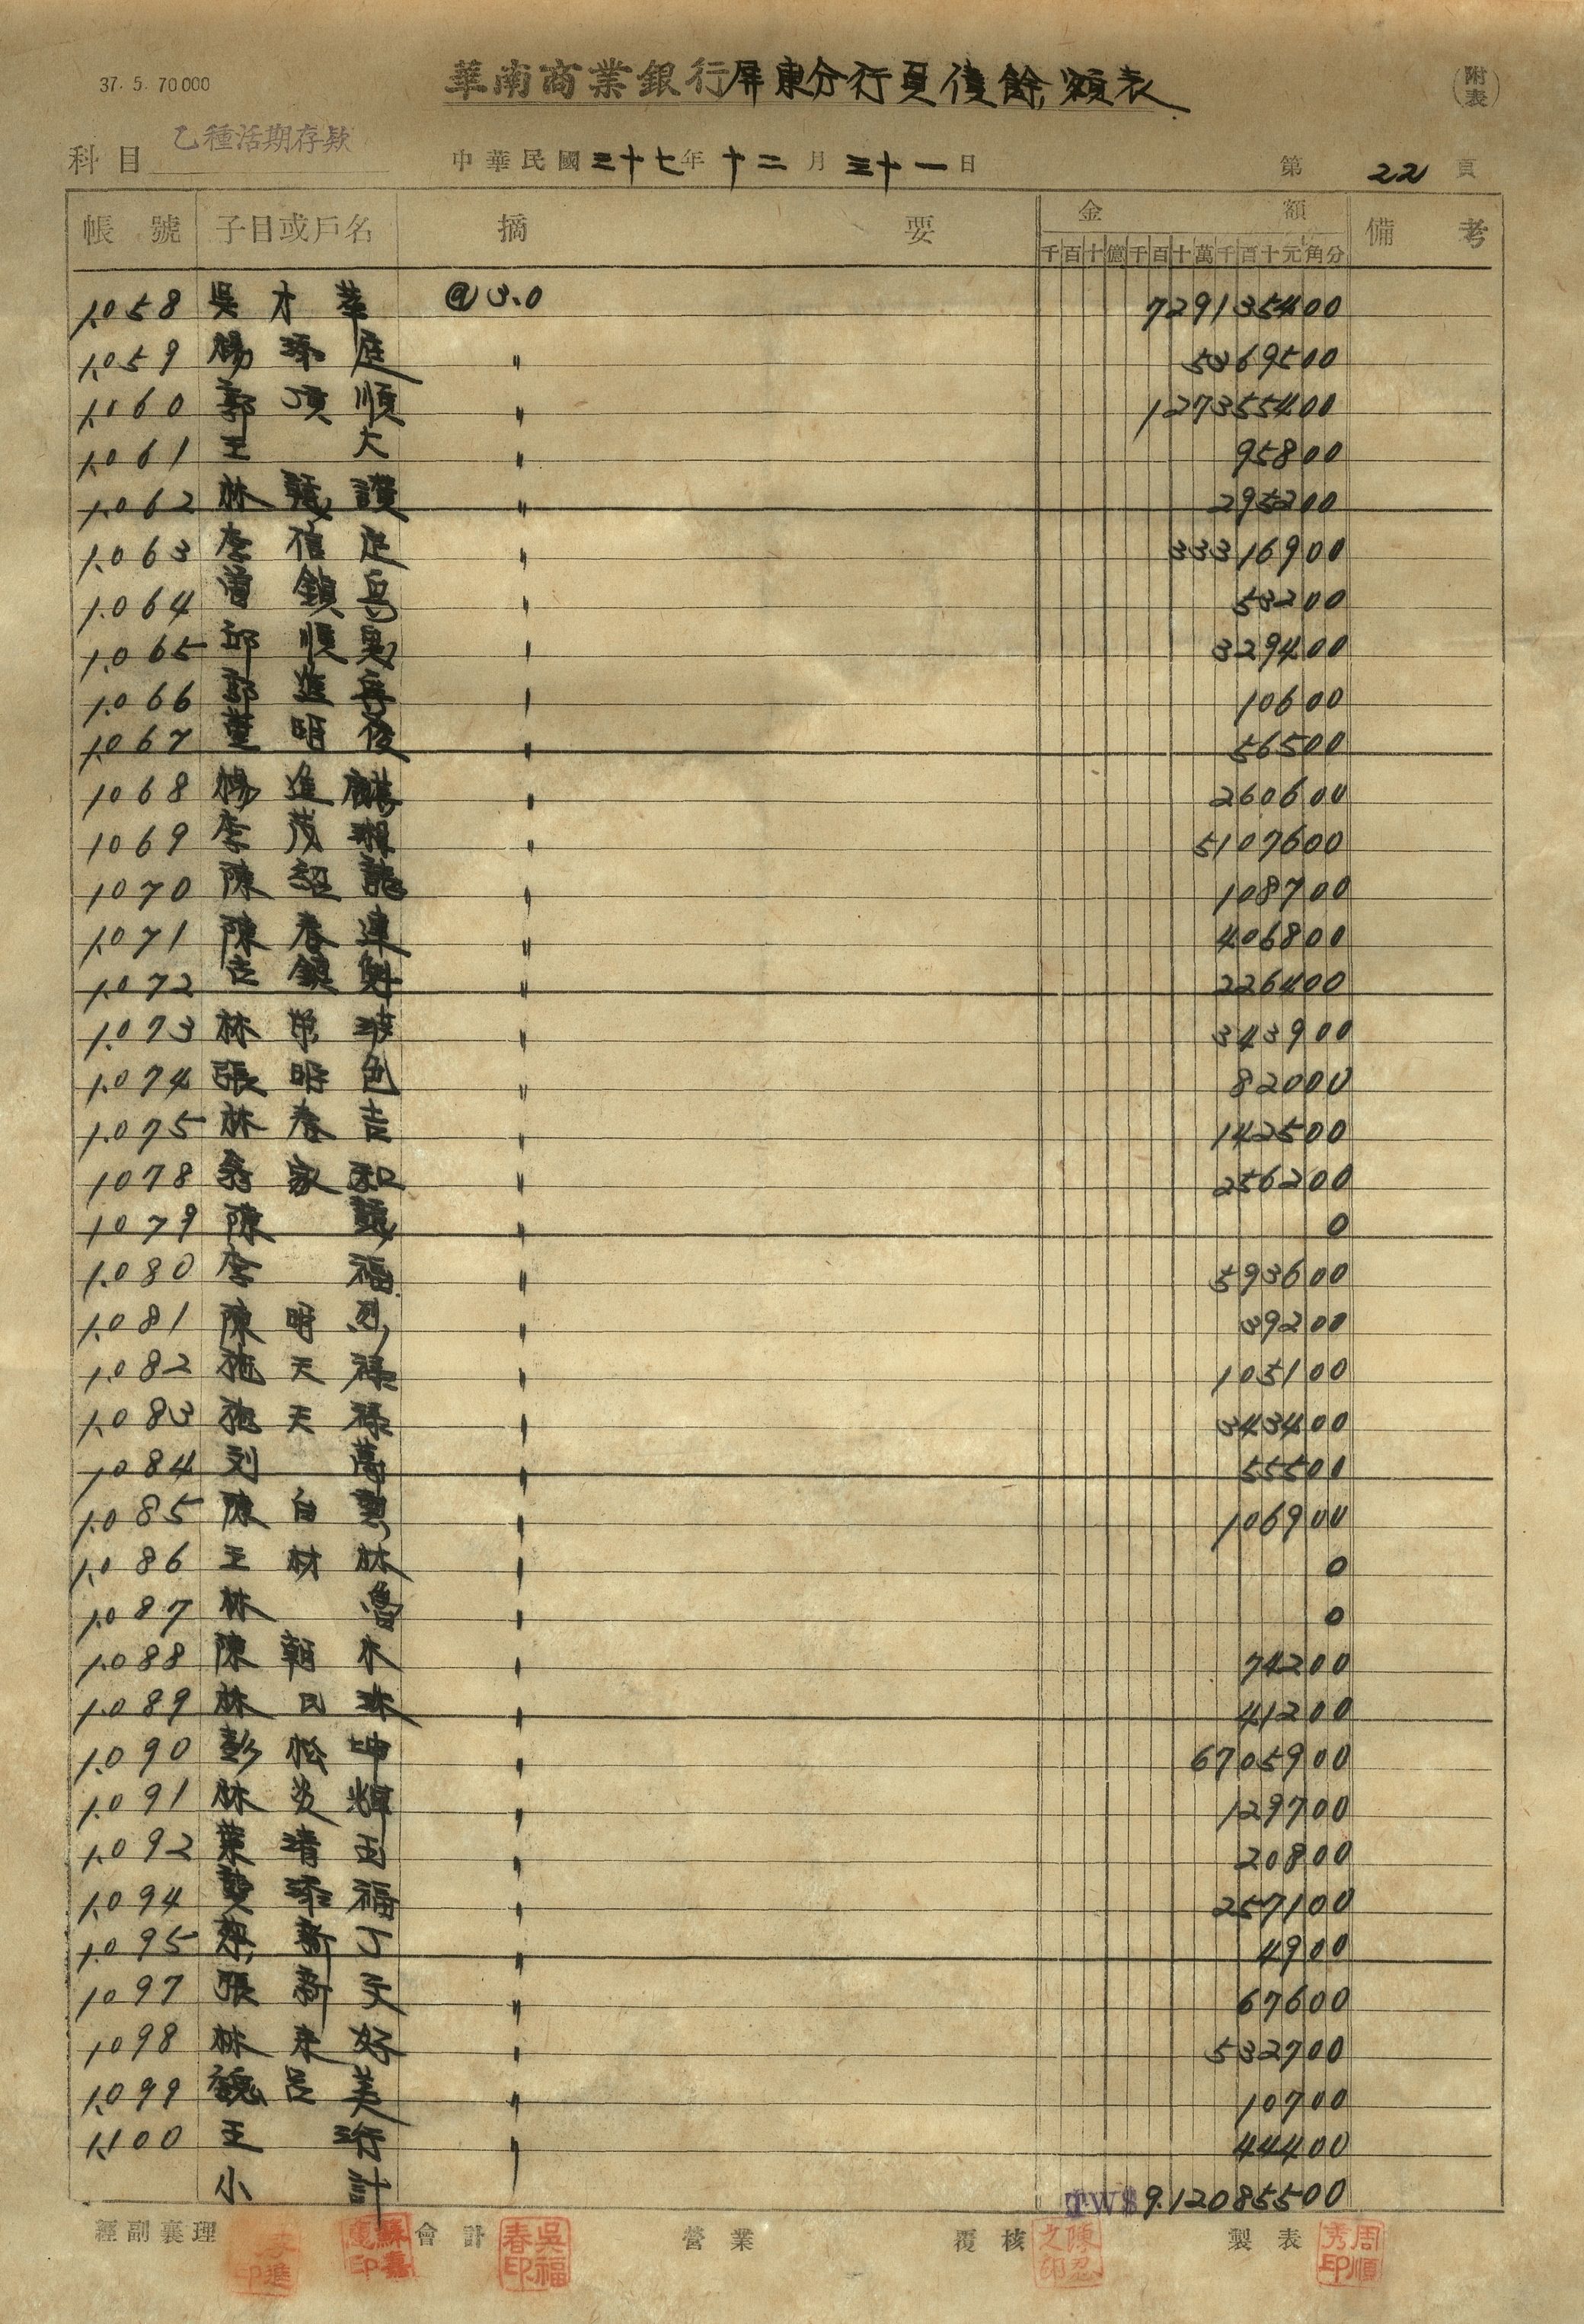 37. 5. 70000
華南商業銀行屏東分行負債餘額表
(附表)
科目 乙種活期存款 中華民國三十七年十二月三十一日 第 22 頁
帳號 子目或戶名 摘要 金額 備考
千百十億千百十萬千百十元角分
1.058 吳木 @3.0 729135400
1.059 楊添庭 〃 5369500
1.060 郭頂順 〃 127355400
1.061 王大 〃 95800
1.062 林讚 〃 295200
1.063 李信定 〃 33316900
1.064 曾鎮 〃 53200
1.065 邱順興 〃 329400
1.066 郭進 〃 10600
1.067 董明俊 〃 56500
1068 楊進麟 〃 260600
1069 李茂 〃 5107600
1070 陳紹龍 〃 108700
1.071 陳春連 〃 406800
1.072 鎮 〃 226400
1.073 林榮波 〃 343900
1.074 張明色 〃 82000
1.075 林春吉 〃 142500
1078 翁家和 〃 256200
1079 陳號 〃 0
1.080 李福 〃 593600
1.081 陳明烈 〃 39200
1.082 施天祿 〃 105100
1.083 施天祿 〃 343400
1084 刘萬 〃 55500
1.085 陳白 〃 106900
1.086 王材林 〃 0
1.087 林魯 〃 0
1.088 陳朝木 〃 74200
1.089 林民珠 〃 41200
1.090 彭松坤 〃 6705900
1.091 林炎輝 〃 129700
1.092 葉清玉 〃 20800
1.094 龔添福 〃 257100
1.095 蔡新丁 〃 4900
1097 張新文 〃 67600
1098 林來好 〃 532700
1.099 魏呂美 〃 10700
1.100 王珩 〃 44400
小計 TW$ 9.12085500
經副襄理 會計 營業 覆核 製表
吳福春印
陳忍之印
周順秀印